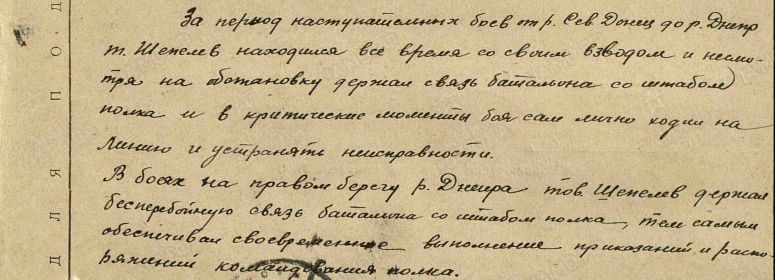 За период наступательных боев от р. Сев Донец до р. Днепр
т. Шепелев находился все время со своим взводом и несмо-
тря на обстановку держал связь батальона со штабом
полка и в критические моменты боя сам лично ходил на
линию и устранять неисправности.
В боях на правом берегу р. Днепра тов. Шепелев держал
бесперебойную связь батальона со штабом полка, тем самым
обеспечивал своевременное выполнение приказаний и распо-
ряжений командования полка.
ДЛЯ ПОД